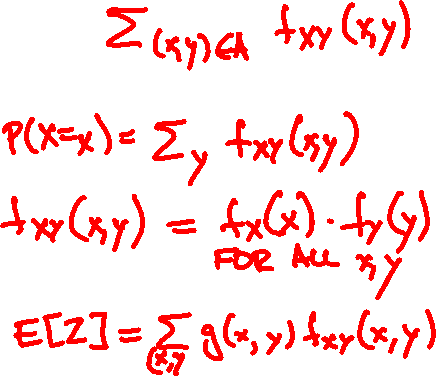 Σ_{(x,y)∈A} f_{XY}(x,y)
P(X=x) = Σ_y f_{XY}(x,y)
f_{XY}(x,y) = f_X(x) · f_Y(y)
FOR ALL x,y
E[Z] = Σ_{(x,y} g(x,y) f_{XY}(x,y)